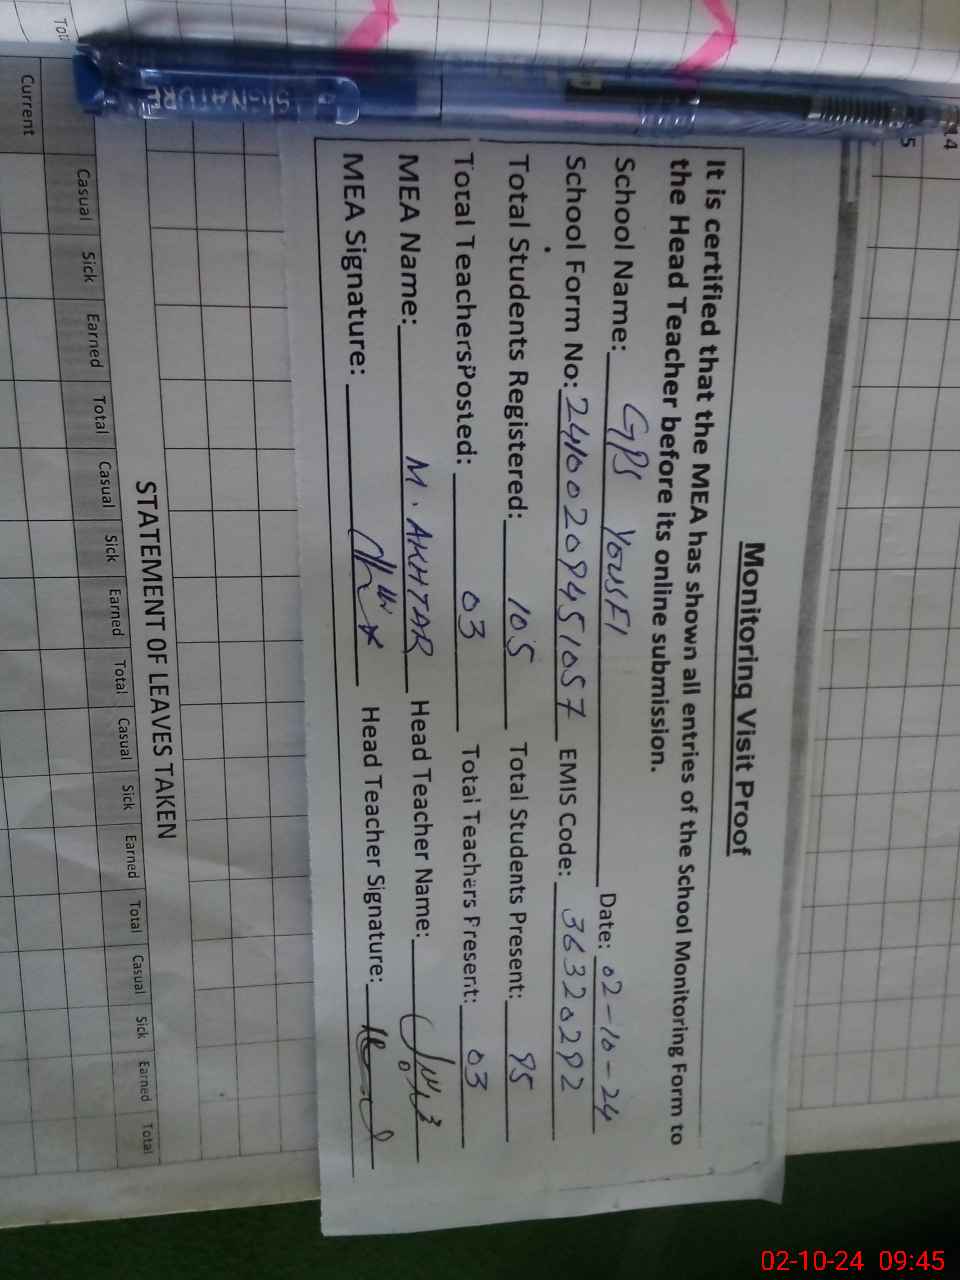 Monitoring Visit Proof
It is certified that the MEA has shown all entries of the School Monitoring Form to
the Head Teacher before its online submission.
School Name: GPS YOUSFI Date: 02-10-24
School Form No: 24100209451057 EMIS Code: 36320292
Total Students Registered: 105 Total Students Present: 95
Total TeachersPosted: 03 Total Teachers Present: 03
MEA Name: M. AKHTAR Head Teacher Name:
MEA Signature: Head Teacher Signature:
SIGNATURE
14
15
STATEMENT OF LEAVES TAKEN
Casual Sick Earned Total Casual Sick Earned Total Casual Sick Earned Total Casual Sick Earned Total
Current
02-10-24 09:45